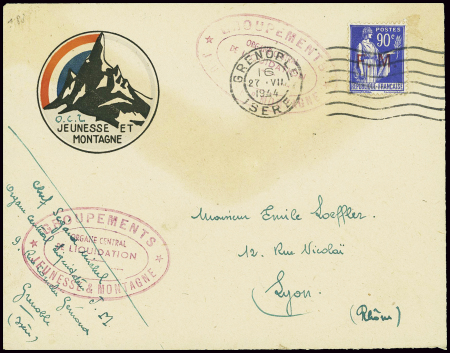 O.C.L
JEUNESSE ET
MONTAGNE
GROUPEMENTS
ORGANE
GRENOBLE
16
27 · VII
1944
ISERE
POSTES
90c
F. M.
REPUBLIQUE FRANÇAISE
GROUPEMENTS
ORGANE CENTRAL
LIQUIDATION
JEUNESSE & MONTAGNE
Chef
Organe Central Liquidateur J. M
9. Rue
Grenoble
(Isère)
Monsieur Emile Loeffler.
12. Rue Nicolaï
Lyon
(Rhône)